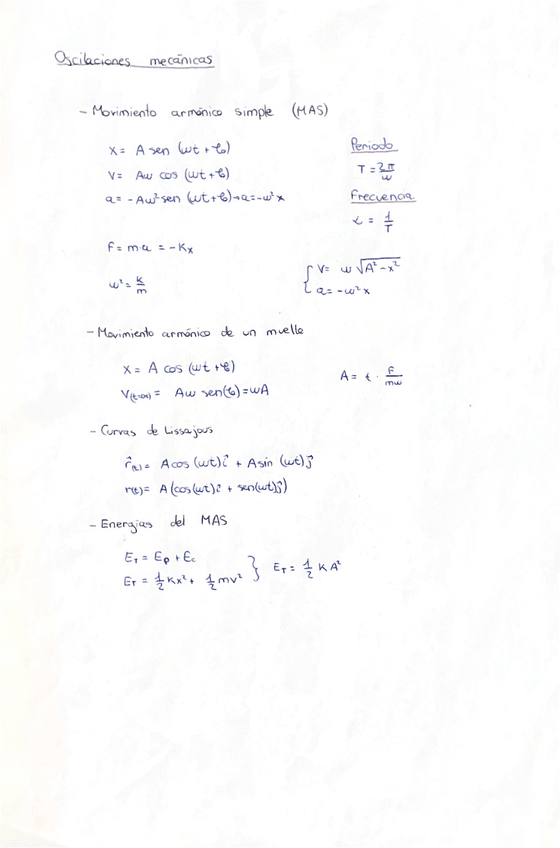 Oscilaciones mecánicas
- Movimiento armónico simple (MAS)
x = A sen (ωt + φ)
v = Aω cos (ωt + φ)
a = -Aω² sen (ωt + φ) → a = -ω²x
Periodo
T = 2π/ω
Frecuencia
= 1/T
F = m·a = -Kx
ω² = K/m
{ v = ω √(A² - x²)
a = -ω²x
- Movimiento armónico de un muelle
x = A cos (ωt + φ)
= Aω sen(φ) = ωA
A = t · F/mω
- Curvas de Lissajous
r(t) = A cos (ωt) i + A sin (ωt) j
r(t) = A (cos (ωt) i + sen(ωt) j)
- Energías del MAS
E_T = E_p + E_c
E_T = 1/2 Kx² + 1/2 mv² } E_T = 1/2 K A²